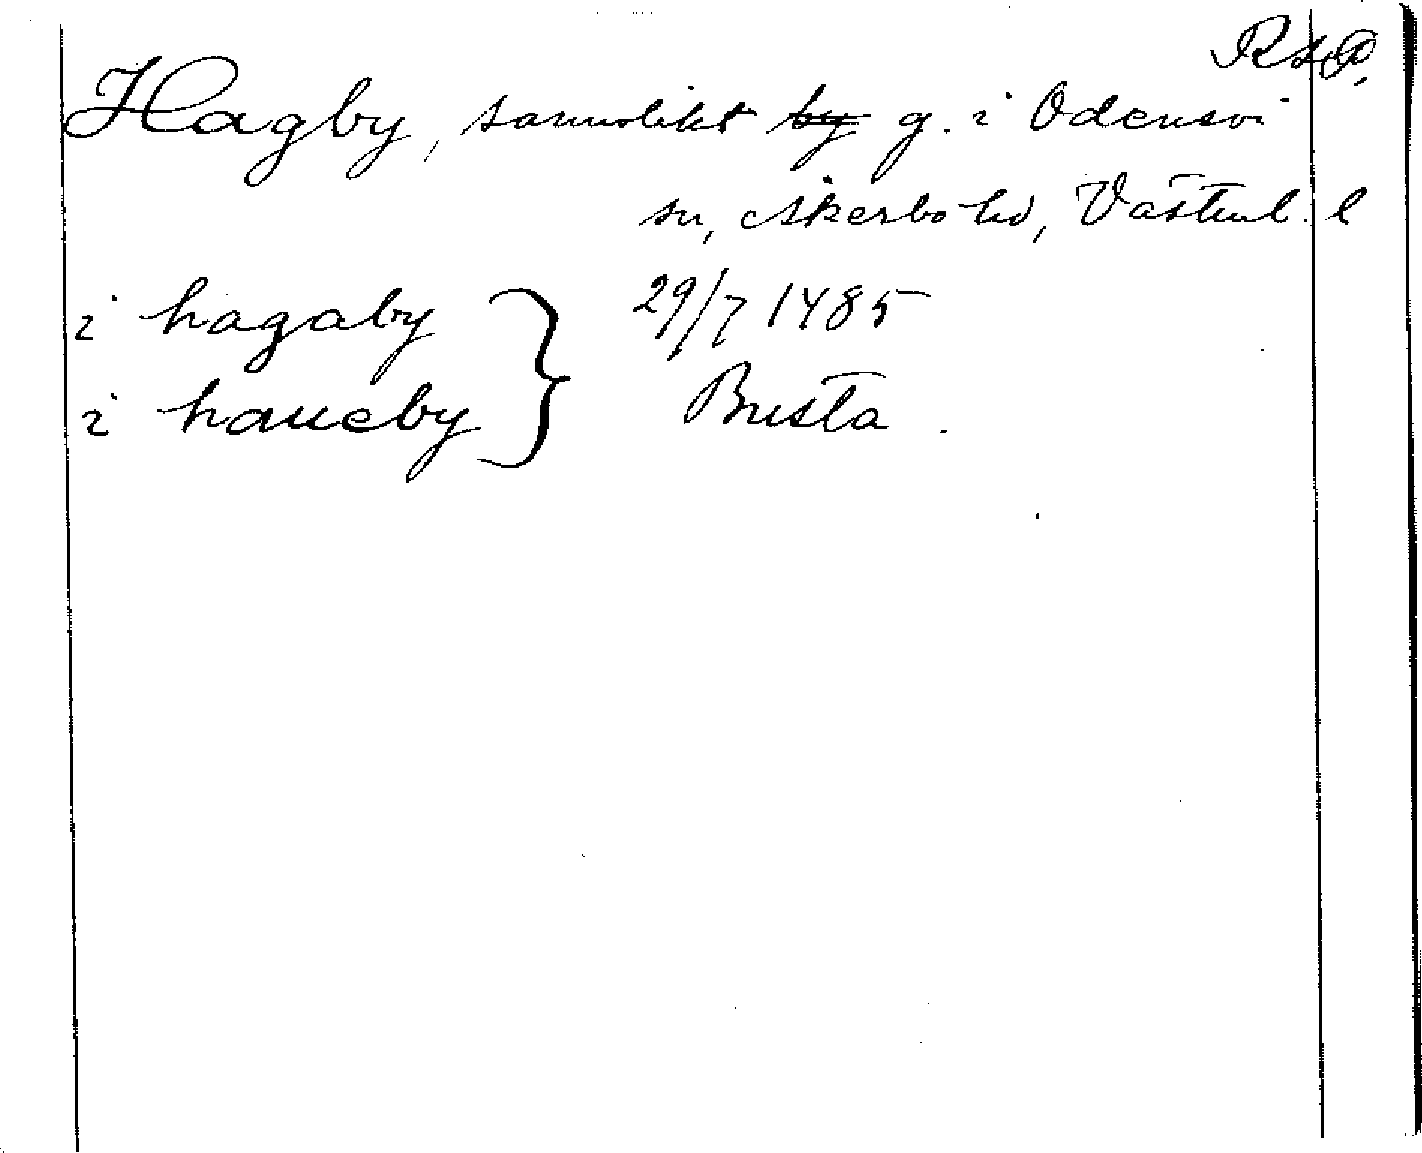 RAP.
Hagby, sannolikt by g. i Odensvi
sn, Åkerbo hd, Västml. l
i hagaby } 29/7 1485
i haueby Brista.